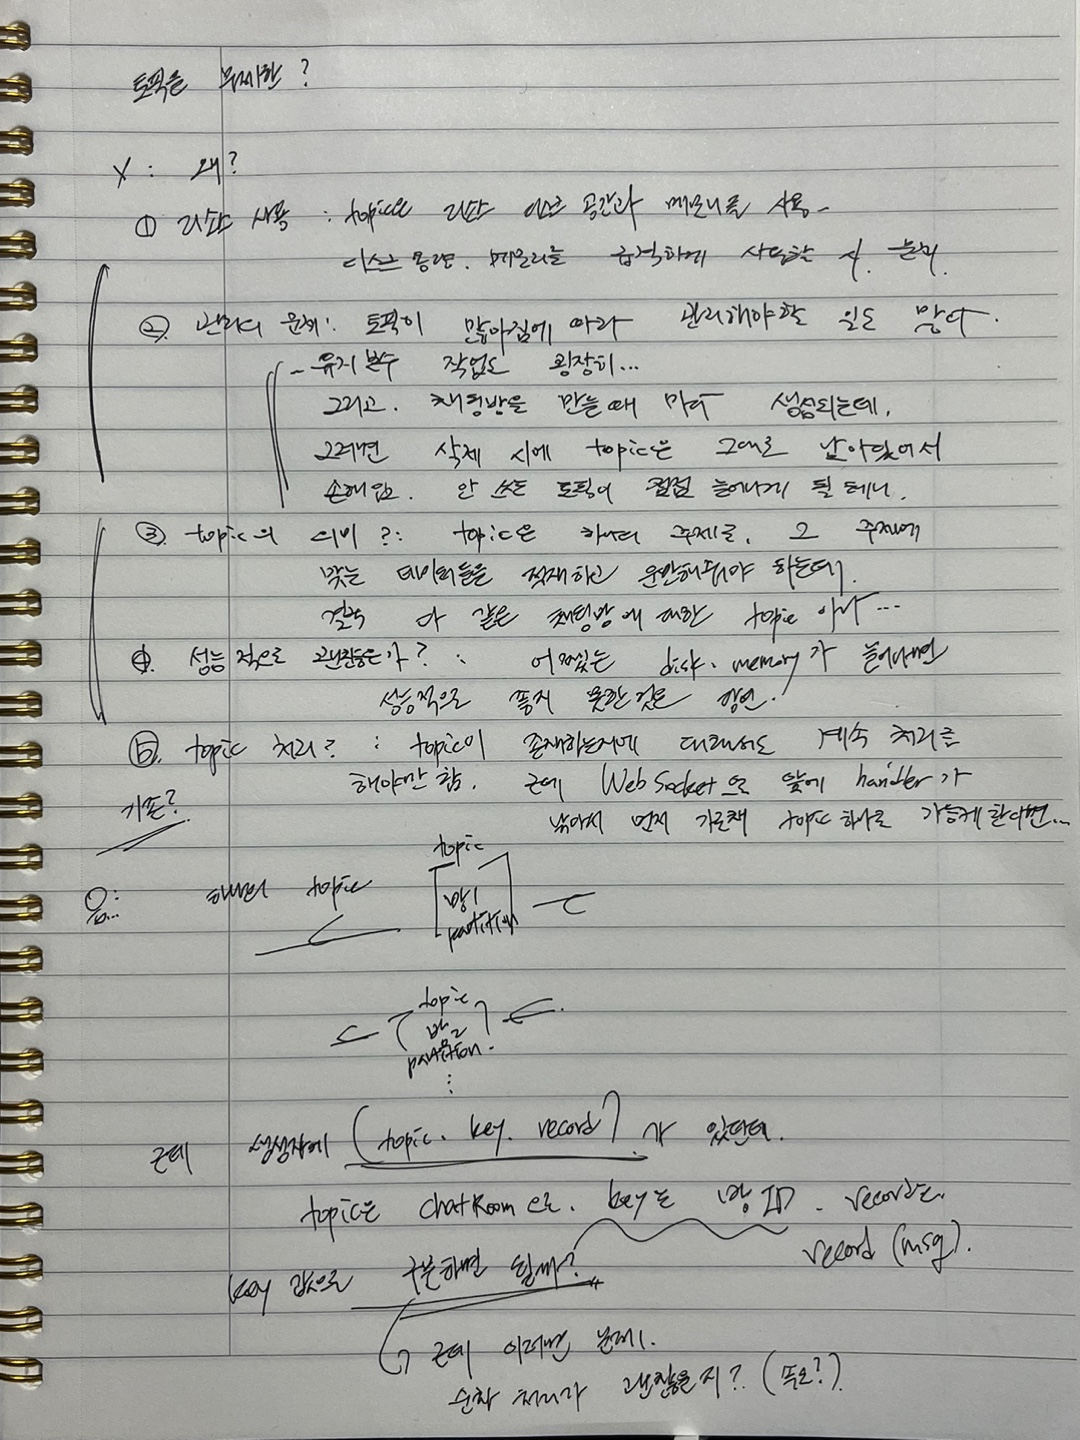 토픽을 무제한?
X : 왜?
① 리소스 사용 : topic은 리소스 디스크 공간과 메모리를 사용.
디스크 용량. 메모리를 급격하게 사용할 시. 문제.
② 관리의 문제: 토픽이 많아짐에 따라 관리해야할 일도 많다.
- 유지보수 작업도 굉장히...
그리고. 채팅방을 만들 때 마다 생성되는데,
그러면 삭제 시에 topic은 그대로 남아있어서
손해임. 안 쓰는 토픽이 점점 늘어나게 될 테니.
③. topic의 의미?: topic은 하나의 주제로, 그 주제에
맞는 데이터들을 적재하고 운반해줘야 하는데.
결국 다 같은 채팅방에 대한 topic 이다...
④. 성능적으로 괜찮은가? : 어쨌든 disk. memory가 늘어나면
성능적으로 좋지 못한것은 당연.
⑤. topic 처리? : topic이 존재하는거에 대해서도 계속 처리를
해야만 함. 근데 WebSocket으로 앞에 handler가
기존?
남아서 먼저 topic 하나로 가능케 한다면...
topic
음... 하나의 topic
방1
partition
topic
방2
partition.
⋮
근데 생성자에 (topic. key. record)가 있던데.
topic은 chatRoom으로. key는 방 ID. record는.
record (msg).
key 값으로 구분하면 될까?
근데 이러면 문제.
순차 처리가 괜찮을지? (속도?)